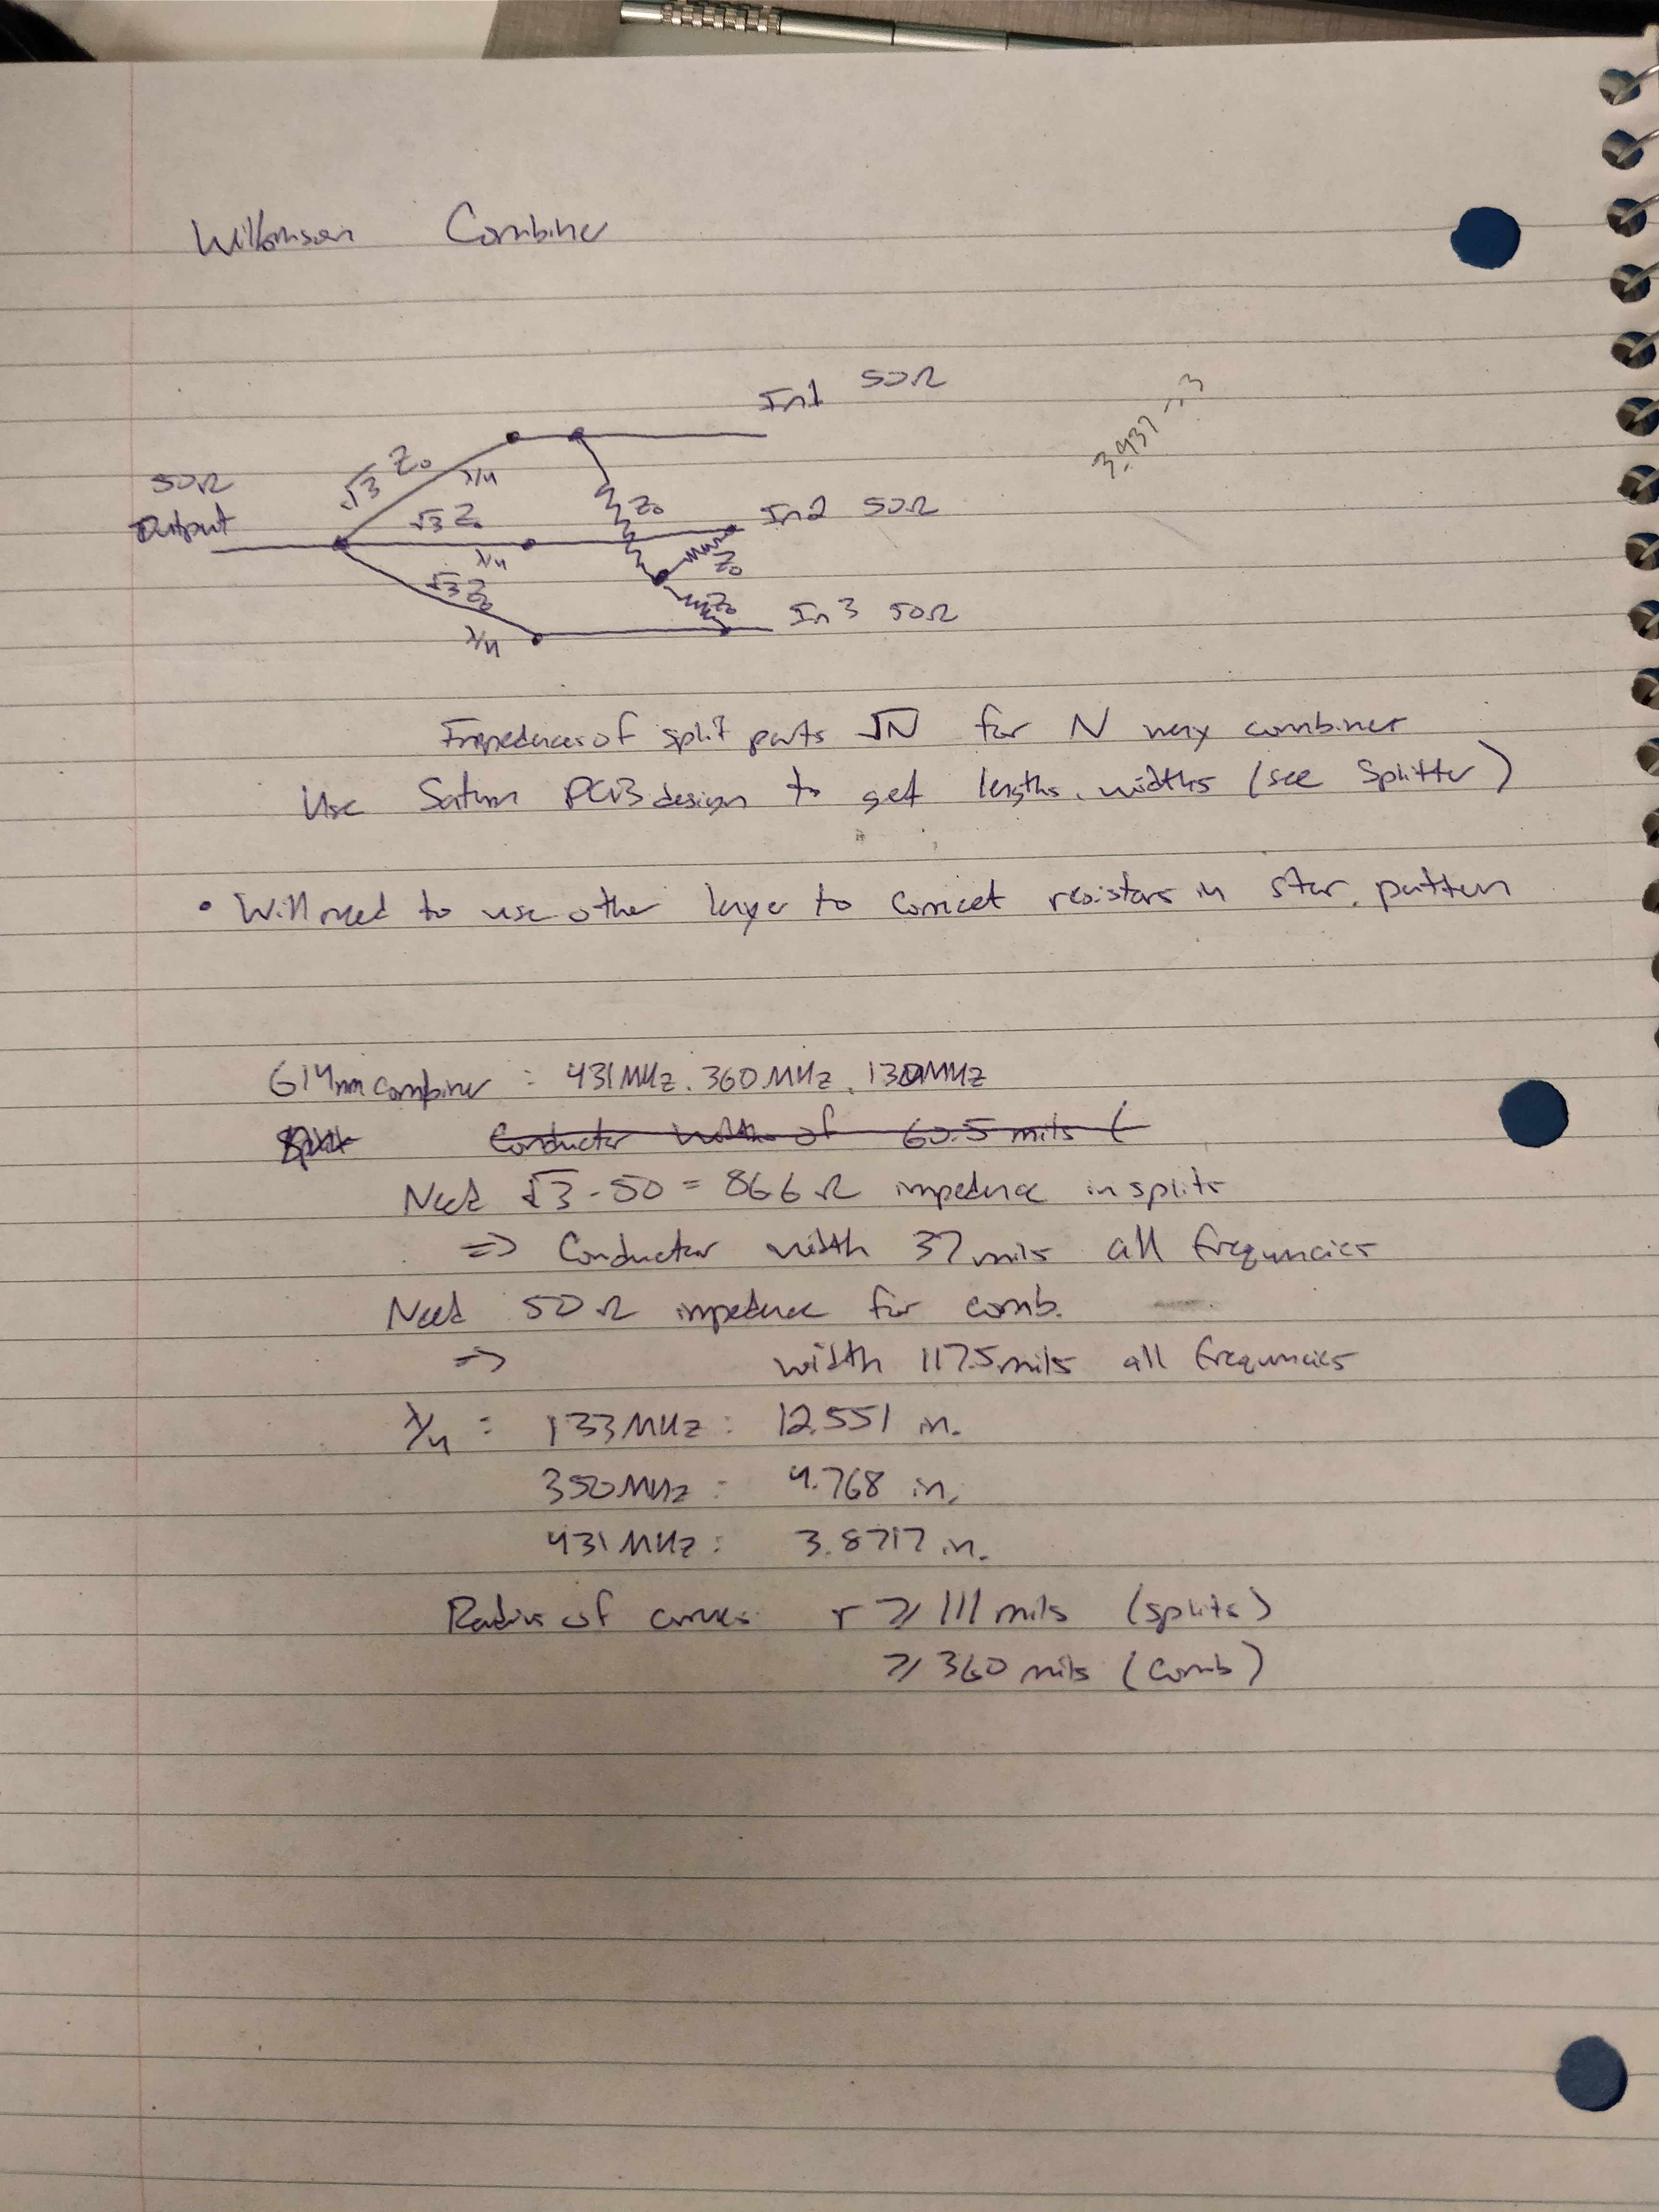 Wilkinson Combiner
In1 50Ω
3.937
50Ω
Output
√3 Z₀
λ/4
√3 Z₀
λ/4
√3 Z₀
λ/4
Z₀
Z₀
Z₀
In2 50Ω
In3 50Ω
Impedances of split parts √N for N way combiner
Use Saturn PCB design to get lengths, widths (see Splitter)
• Will need to use other layer to connect resistors in star pattern
614nm combiner : 431MHz, 360MHz, 130MHz
Conductor width of 60.5 mils (
Need √3 · 50 = 866Ω impedance in splits
=> Conductor width 37 mils all frequencies
Need 50Ω impedance for comb.
=> width 117.5 mils all frequencies
λ/4 : 133MHz : 12.551 in.
350MHz : 4.768 in.
431MHz : 3.8717 in.
Radius of curves r ≥ 111 mils (splits)
≥ 360 mils (comb)